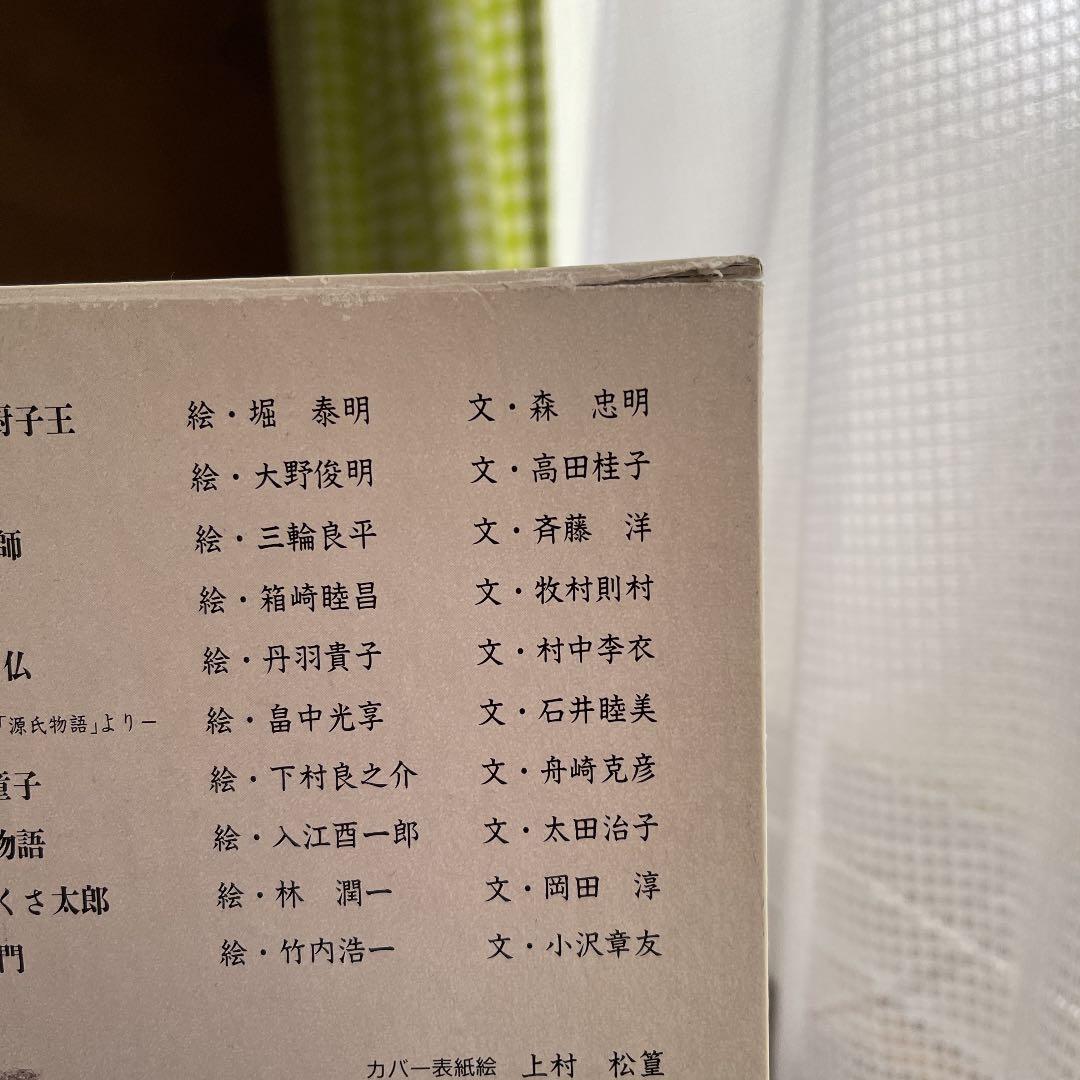 厨子王 絵・堀 泰明 文・森 忠明
絵・大野俊明 文・高田桂子
師 絵・三輪良平 文・斉藤 洋
絵・箱崎睦昌 文・牧村則村
仏 絵・丹羽貴子 文・村中李衣
「源氏物語」よりー 絵・畠中光享 文・石井睦美
童子 絵・下村良之介 文・舟崎克彦
物語 絵・入江酉一郎 文・太田治子
くさ太郎 絵・林 潤一 文・岡田 淳
門 絵・竹内浩一 文・小沢章友
カバー表紙絵 上村 松篁